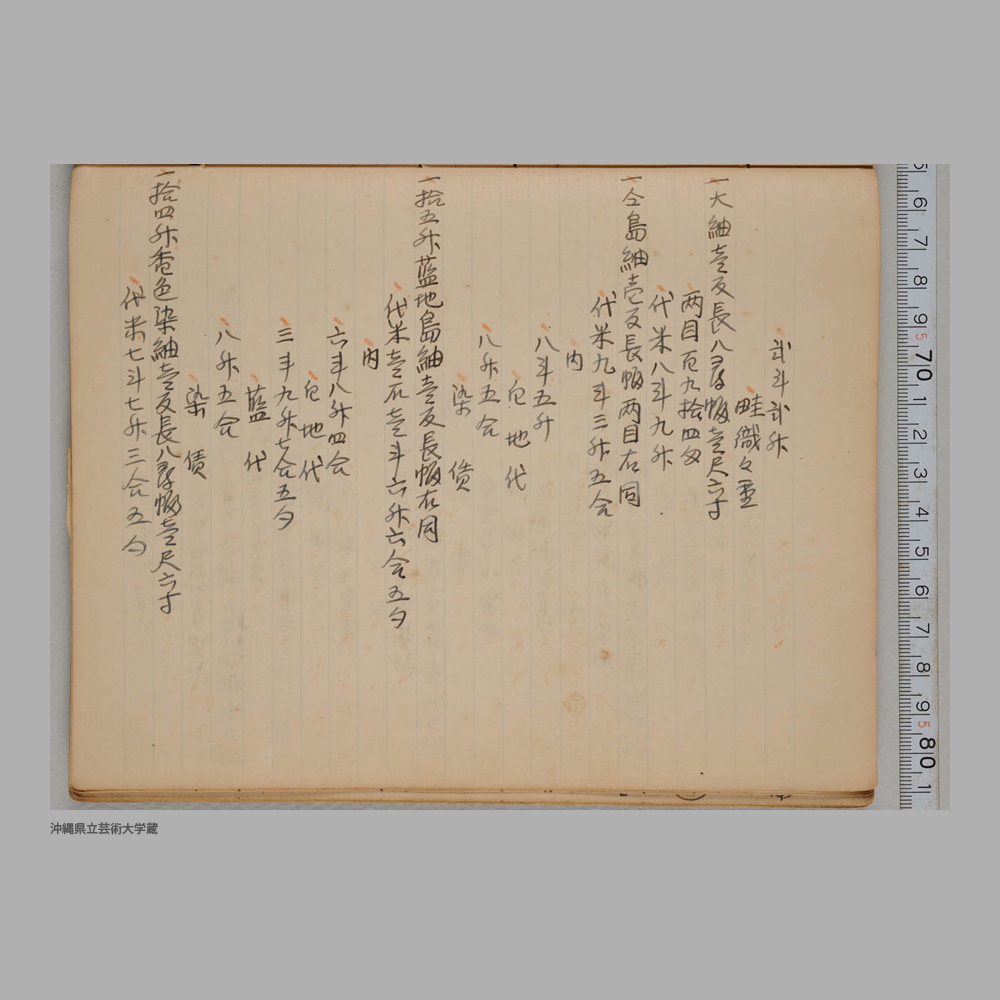 弐斗弐升
畦織々疊
一大紬壱反長八尋幅壱尺六寸
両目百九拾四匁
代米八斗九升
一仝島紬壱反長幅両目右同
代米九斗三升五合
内
八斗五升
白地代
八升五合
染債
一拾五升藍地島紬壱反長幅右同
代米壱石壱斗六升六合五勺
内
六斗八升四合
白地代
三斗九升七合五勺
藍代
八升五合
染債
一拾四升香色染紬壱反長八尋幅壱尺六寸
代米七斗七升三合五勺
沖縄県立芸術大学蔵
5 6 7 8 9 5 70 1 2 3 4 5 6 7 8 9 5 80 1